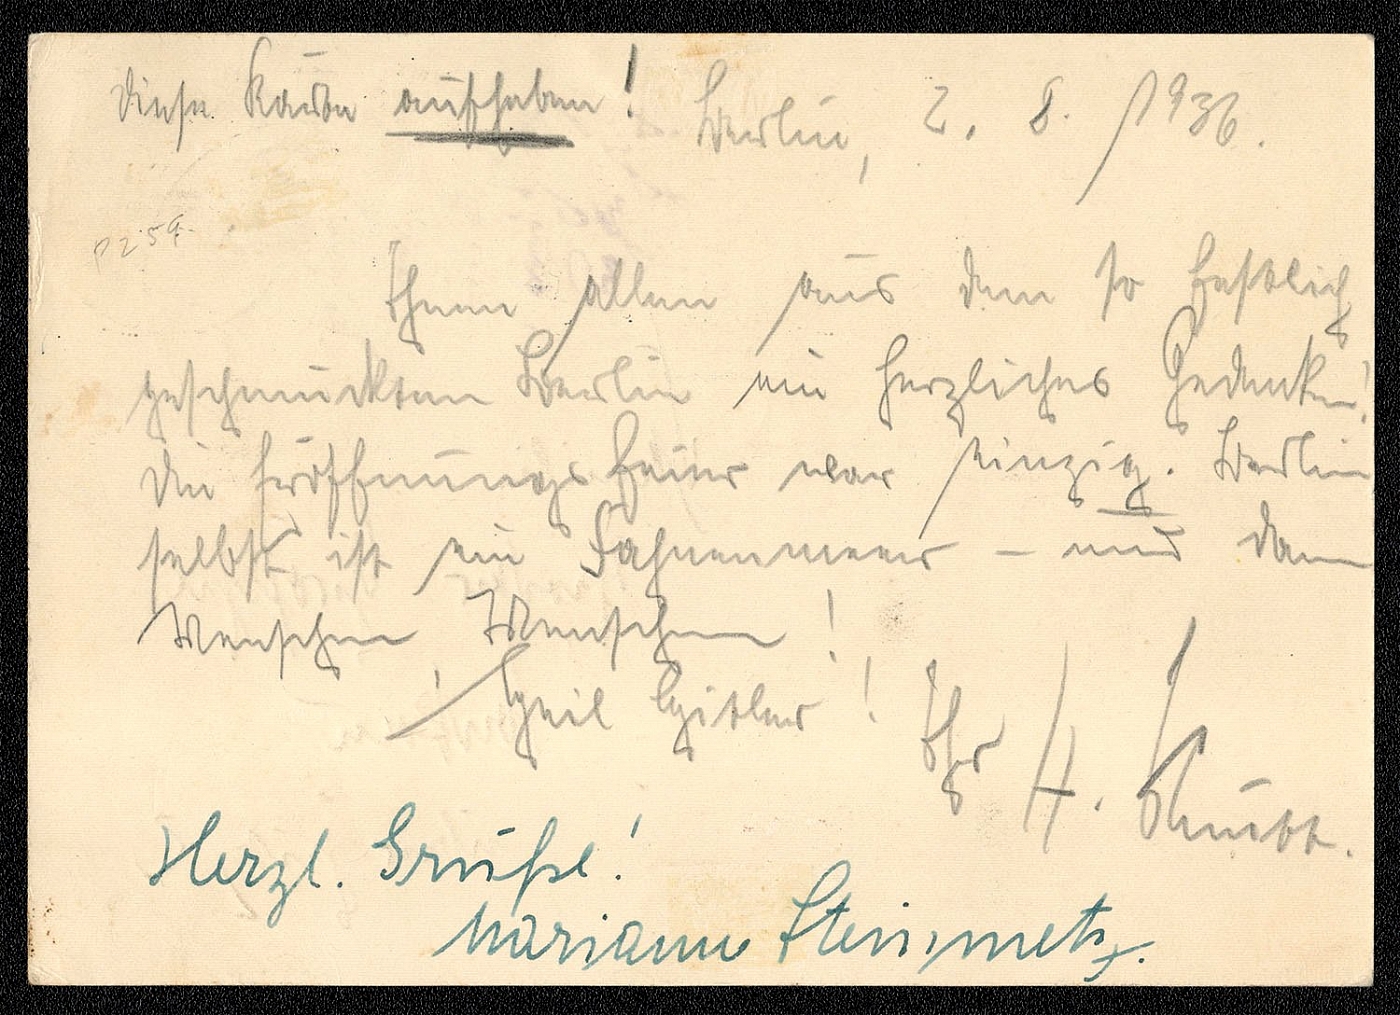 Diese Karte aufheben! Berlin, 2. 8. 1936.
P259
Ihnen allen aus dem so festlich
geschmückten Berlin ein herzliches Gedenken!
Die Eröffnungsfeier war einzig. Berlin
selbst ist ein Fahnenmeer – und dann
Menschen, Menschen!
Heil Hitler! Ihr H.
Herzl. Grüße!
Mariann Steinmetz.